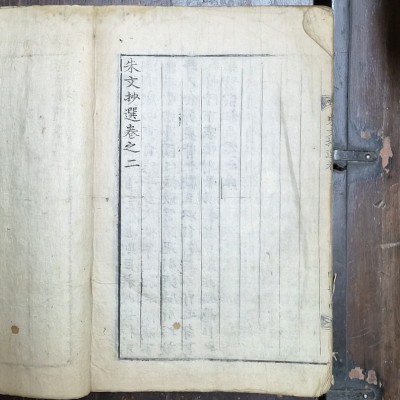 朱文抄選卷之二